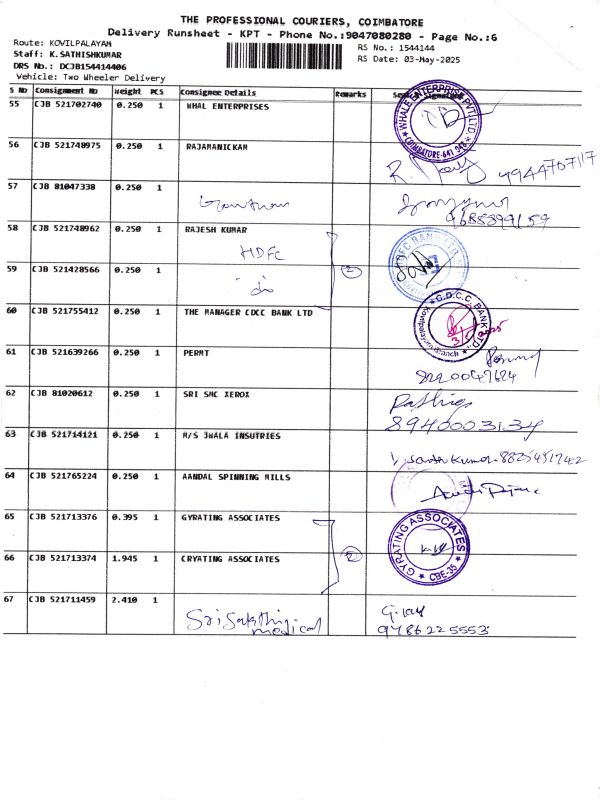 THE PROFESSIONAL COURIERS, COIMBATORE
Delivery Runsheet - KPT - Phone No.:9047080280 - Page No.:6
Route: KOVILPALAYAM
Staff: K.SATHISHKUMAR
DRS No.: DCJB154414406
Vehicle: Two Wheeler Delivery
RS No.: 1544144
RS Date: 03-May-2025
S No Consignment No Weight PCS Consignee Details Remarks
55 CJB 521702740 0.250 1 WHAL ENTERPRISES
WHALE ENTERPRISE PVT LTD
COIMBATORE-641
56 CJB 521748975 0.250 1 RAJAMANICKAM
R.
57 CJB 81047338 0.250 1
58 CJB 521748962 0.250 1 RAJESH KUMAR
HDFC
HDFC BANK LTD
59 CJB 521428566 0.250 1
do
2
60 CJB 521755412 0.250 1 THE MANAGER CDCC BANK LTD
C.D.C.C. BANK LTD.
Kovilpalayam Branch
61 CJB 521639266 0.250 1 PERMT
62 CJB 81020612 0.250 1 SRI SMC XEROX
8940003134
63 CJB 521714121 0.250 1 M/S JWALA INSUTRIES
8825451742
64 CJB 521765224 0.250 1 AANDAL SPINNING MILLS
65 CJB 521713376 0.395 1 GYRATING ASSOCIATES
GYRATING ASSOCIATES
CBE-35
2
66 CJB 521713374 1.945 1 CRYATING ASSOCIATES
67 CJB 521711459 2.410 1
Sri Sakthi medical
9486225553